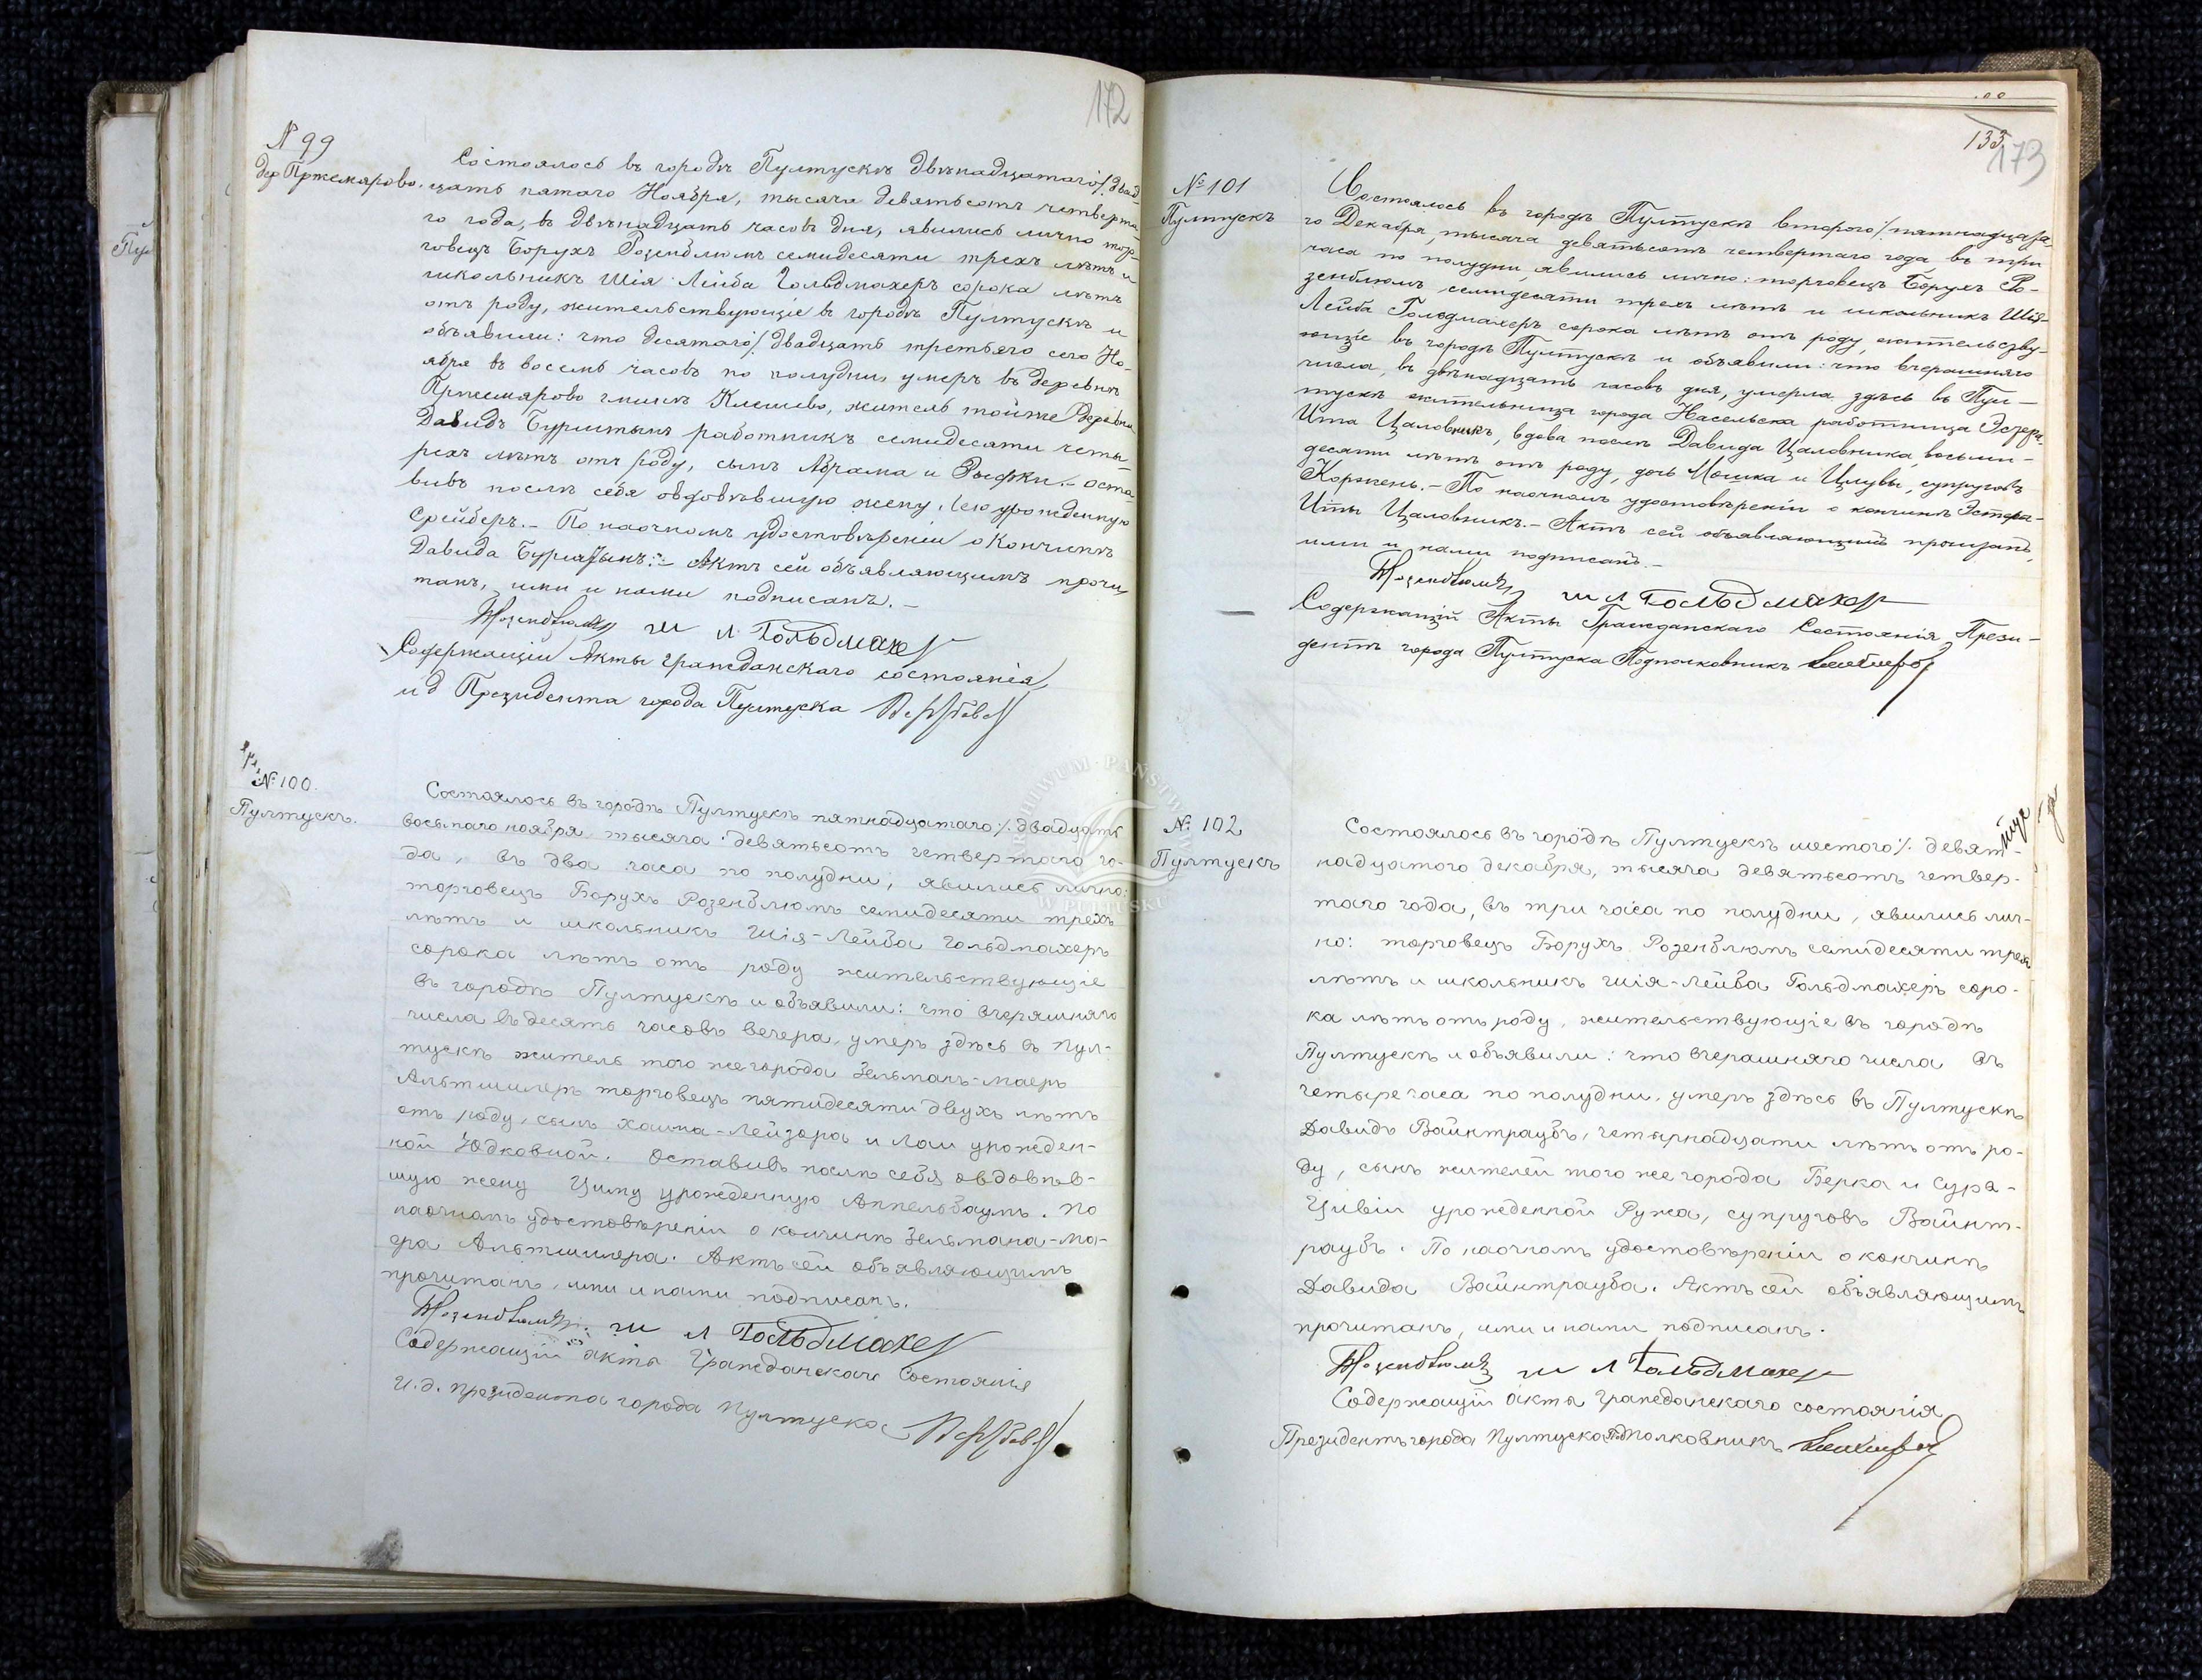 172
№ 99
дер Пржемярово.
Состоялось въ городѣ Пултускѣ двѣнадцатаго/двад-
цать пятаго Ноября, тысяча девятьсотъ четверта-
го года, въ двѣнадцать часовъ дня, явились лично тор-
говецъ Борухъ Розенблюмъ семидесяти трехъ лѣтъ и
школьникъ Шія Лейба Гольдмахеръ сорока лѣтъ
отъ роду, жительствующіе въ городѣ Пултускѣ и
объявили: что десятаго/двадцать третьяго сего Но-
ября въ восемь часовъ по полудни, умеръ въ деревнѣ
Пржемярово гмины Клешево, житель тойже деревни
Давидъ Бурштынъ работникъ семидесяти четы-
рехъ лѣтъ отъ роду, сынъ Абрама и Рыфки. – оста-
вивъ послѣ себя овдовѣвшую жену, Лею урожденную
Срейберъ. – По наочномъ удостовѣреніи о кончинѣ
Давида Бурштынъ: – Актъ сей объявляющимъ прочи
танъ, ими и нами подписанъ. –
Розенблюмъ Ш Л Гольдмахер
Содержащій Акты гражданскаго состоянія,
и д Президента города Пултуска
№ 100.
Пултускъ.
Состоялось въ городѣ Пултускѣ пятнадцатаго/двадцать
восьмаго ноября тысяча девятьсотъ четвертаго го-
да, въ два часа по полудни, явились лично:
торговецъ Борухъ Розенблюмъ семидесяти трехъ
лѣтъ и школьникъ Шія-Лейба Гольдмахеръ
сорока лѣтъ отъ роду жительствующіе
въ городѣ Пултускѣ и объявили: что вчерашняго
числа въ десять часовъ вечера, умеръ здѣсь въ Пул-
тускѣ житель того же города Зельманъ-Маеръ
Альтшилеръ торговецъ пятидесяти двухъ лѣтъ
отъ роду, сынъ Хаима-Лейзора и Лаи урожден-
ной Юдковной. Оставивъ послѣ себя овдовѣв-
шую жену Циму урожденную Аппельбаумъ. По
наочномъ удостовѣреніи о кончинѣ Зельмана-Ма-
ера Альтшилера. Актъ сей объявляющимъ
прочитанъ, ими и нами подписанъ.
Розенблюмъ. Ш Л Гольдмахер
Содержащій акты Гражданскаго Состоянія
И. д. президента города Пултуска
133
173
№ 101
Пултускъ
Состоялось въ городѣ Пултускѣ втораго/пятнадцата-
го Декабря, тысяча девятьсотъ четвертаго года въ три
часа по полудни, явились лично: торговецъ Борухъ Ро-
зенблюмъ, семидесяти трехъ лѣтъ и школьникъ Шія-
Лейба Гольдмахеръ сорока лѣтъ отъ роду, жительству-
ющіе въ городѣ Пултускѣ и объявили: что вчерашняго
числа, въ двѣнадцать часовъ дня, умерла здѣсь въ Пул-
тускѣ жительница города Насельска работница Эстера-
Ита Цаловникъ, вдова послѣ Давида Цаловника, восьми-
десяти лѣтъ отъ роду, дочь Мошка и Цлувы, супруговъ
Коржень. – По наочномъ удостовѣреніи о кончинѣ Эстеры-
Иты Цаловникъ. – Актъ сей объявляющимъ прочитанъ,
ими и нами подписанъ. –
Розенблюмъ, ш Л Гольдмахер
Содержащій Акты Гражданскаго Состоянія, Прези-
дентъ города Пултуска Подполковникъ
№ 102
Пултускъ
Состоялось въ городѣ Пултускѣ шестого/девят-
надцатого декабря, тысяча девятьсотъ четвер-
таго года, въ три часа по полудни, явились лич-
но: торговецъ Борухъ Розенблюмъ семидесяти трехъ
лѣтъ и школьникъ Шія-Лейба Гольдмахеръ соро-
ка лѣтъ отъ роду, жительствующіе въ городѣ
Пултускѣ и объявили: что вчерашняго числа въ
четыре часа по полудни, умеръ здѣсь въ Пултускѣ
Давидъ Вайнтраубъ, четырнадцати лѣтъ отъ ро-
ду, сынъ жителей того же города Берка и Сура-
Цивіи урожденной Ружа, супруговъ Вайнт-
раубъ. По наочномъ удостовѣреніи о кончинѣ
Давида Вайнтрауба. Актъ сей объявляющимъ
прочитанъ, ими и нами подписанъ.
Розенблюмъ ш Л Гольдмахер
Содержащій акты гражданскаго состоянія
Президентъ города Пултуска Подполковникъ
ARCHIWUM PAŃSTWOWE
W PUŁTUSKU